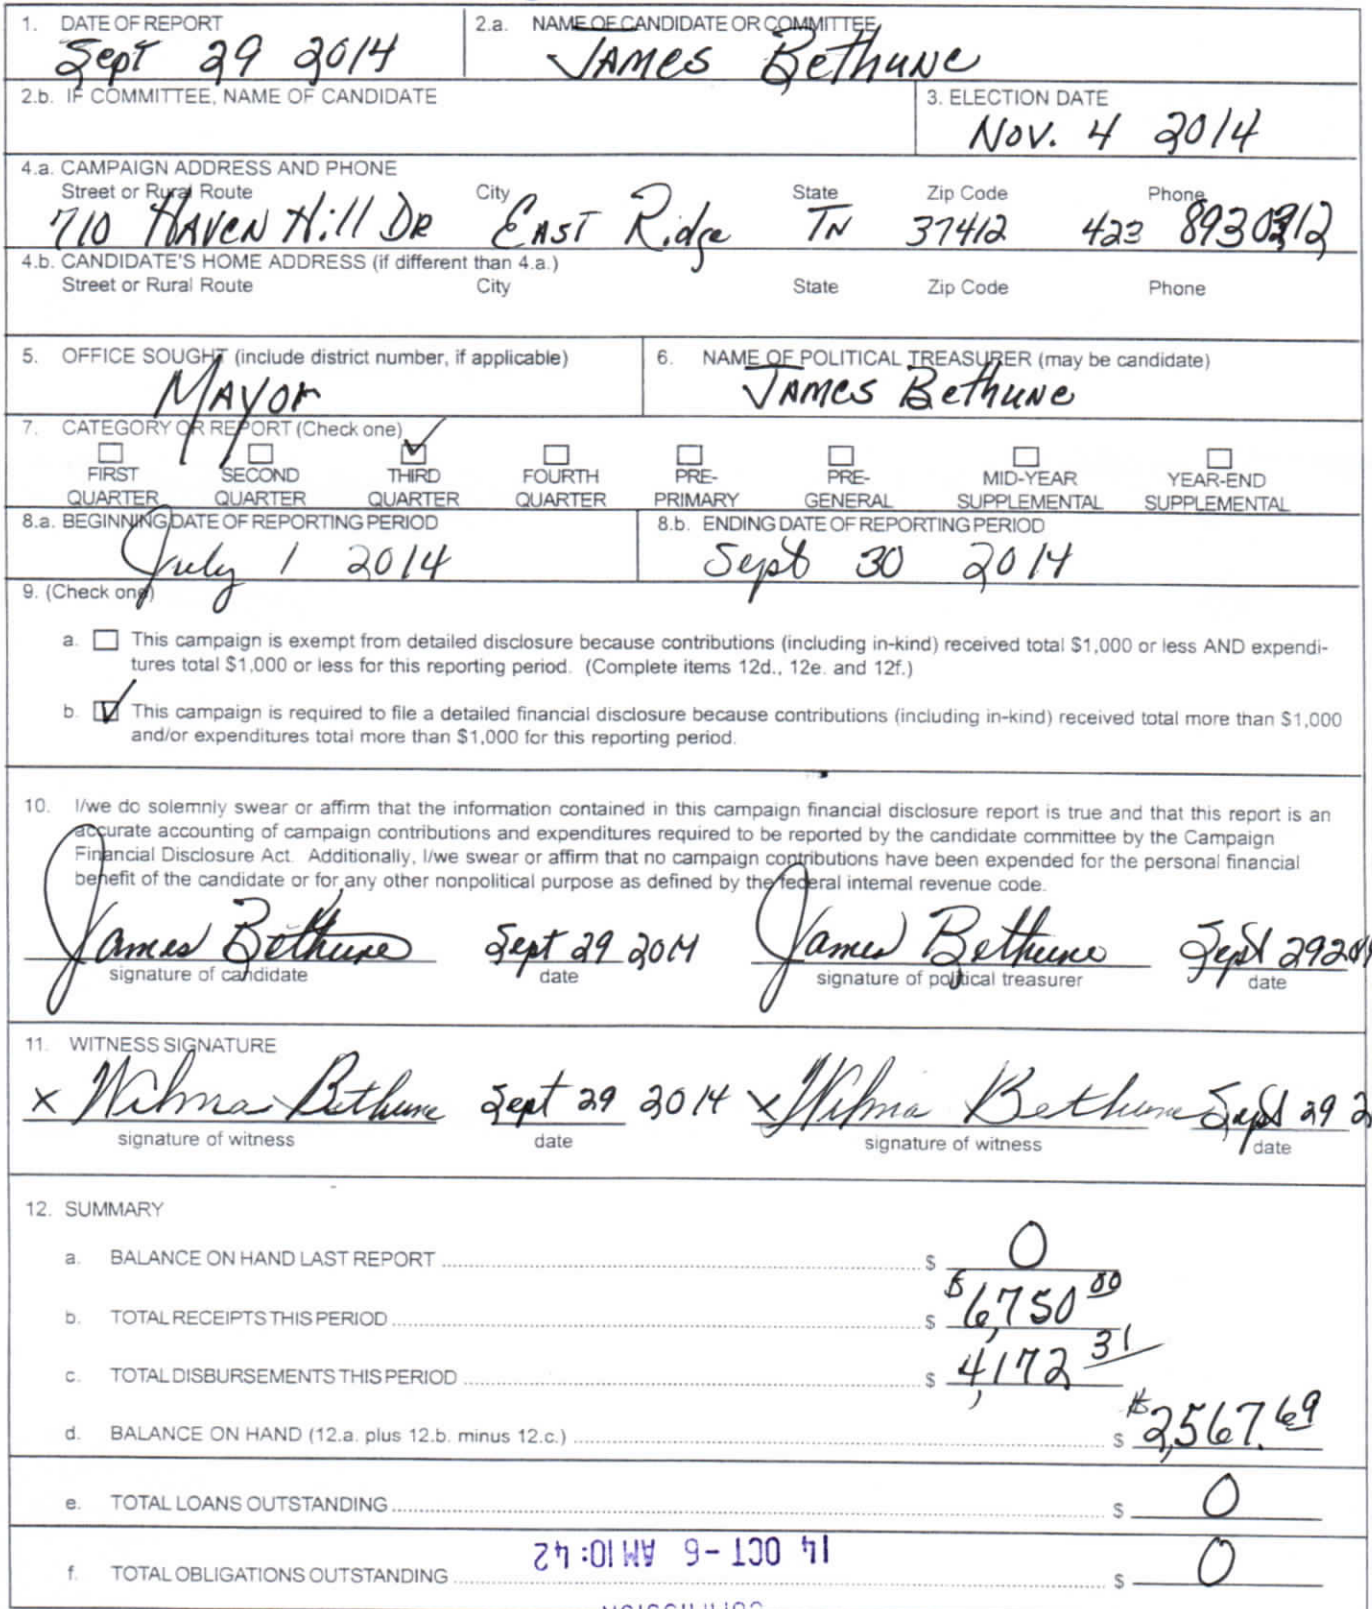 1. DATE OF REPORT
Sept 29 2014
2.a. NAME OF CANDIDATE OR COMMITTEE
JAMES BETHUNE
2.b. IF COMMITTEE, NAME OF CANDIDATE
3. ELECTION DATE
Nov. 4 2014
4.a. CAMPAIGN ADDRESS AND PHONE
Street or Rural Route City State Zip Code Phone
710 HAVEN Hill DR EAST Ridge TN 37412 423
4.b. CANDIDATE'S HOME ADDRESS (if different than 4.a.)
Street or Rural Route City State Zip Code Phone
5. OFFICE SOUGHT (include district number, if applicable)
MAYOR
6. NAME OF POLITICAL TREASURER (may be candidate)
JAMES BETHUNE
7. CATEGORY OR REPORT (Check one)
FIRST QUARTER
SECOND QUARTER
THIRD QUARTER
FOURTH QUARTER
PRE-PRIMARY
PRE-GENERAL
MID-YEAR SUPPLEMENTAL
YEAR-END SUPPLEMENTAL
8.a. BEGINNING DATE OF REPORTING PERIOD
July 1 2014
8.b. ENDING DATE OF REPORTING PERIOD
Sept 30 2014
9. (Check one)
a. This campaign is exempt from detailed disclosure because contributions (including in-kind) received total $1,000 or less AND expendi-
tures total $1,000 or less for this reporting period. (Complete items 12d., 12e. and 12f.)
b. This campaign is required to file a detailed financial disclosure because contributions (including in-kind) received total more than $1,000
and/or expenditures total more than $1,000 for this reporting period.
10. I/we do solemnly swear or affirm that the information contained in this campaign financial disclosure report is true and that this report is an
accurate accounting of campaign contributions and expenditures required to be reported by the candidate committee by the Campaign
Financial Disclosure Act. Additionally, I/we swear or affirm that no campaign contributions have been expended for the personal financial
benefit of the candidate or for any other nonpolitical purpose as defined by the federal internal revenue code.
James Bethune Sept 29 2014 James Bethune Sept 29 2014
signature of candidate date signature of political treasurer date
11. WITNESS SIGNATURE
x Wilma Bethune Sept 29 2014 x Wilma Bethune Sept 29 2
signature of witness date signature of witness date
12. SUMMARY
a. BALANCE ON HAND LAST REPORT $ 0
b. TOTAL RECEIPTS THIS PERIOD $ $6,750 00
c. TOTAL DISBURSEMENTS THIS PERIOD $ 4,172 31
d. BALANCE ON HAND (12.a. plus 12.b. minus 12.c.) $ $2,567.69
e. TOTAL LOANS OUTSTANDING $ 0
14 OCT -6 AM 10:42
f. TOTAL OBLIGATIONS OUTSTANDING $ 0